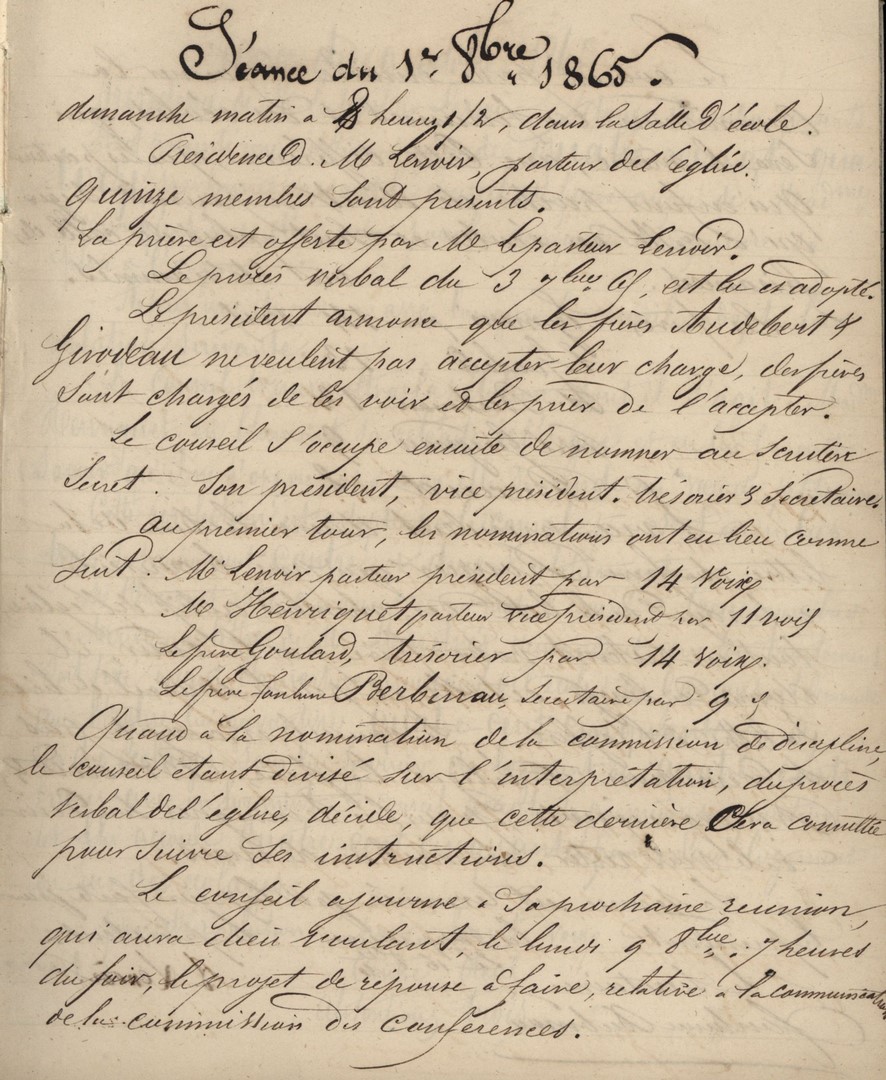 Séance du 1er 8bre 1865.
dimanche matin a 8 heures 1/2, dans la Salle d'école.
Présidence d. Mr Lenoir, pasteur de l'église.
Quinze membres Sont presents.
La prière est offerte par Mr le pasteur Lenoir.
Le procès verbal du 3 7bre est lu et adopté.
Le président annonce que les frères Audebert &
Girodeau ne veulent pas accepter leur charge, des frères
Sont chargés de les voir et les prier de l'accepter.
Le conseil S'occupe ensuite de nommer au Scrutin
Secret. Son président, vice président. trésorier & Secretaire.
au premier tour, les nominations ont eu lieu comme
Suit. Mr Lenoir pasteur président par 14 Voix
Mr Henriquet pasteur vice président par 11 voix
Le frère Goulard, trésorier par 14 Voix.
Le frère Berbinau, Secretaire par 9
Quand à la nomination de la commission de discipline,
le conseil etant divisé Sur l'interprétation, du procès
Verbal de l'église, décide, que cette dernière Cera consultée
pour Suivre Ses instructions.
Le conseil ajourne à Sa prochaine reunion,
qui aura dieu voulant, le lundi 9 8bre à 7 heures
du Soir, le projet de réponse à faire, relative a la communication
de la commission des Conferences.